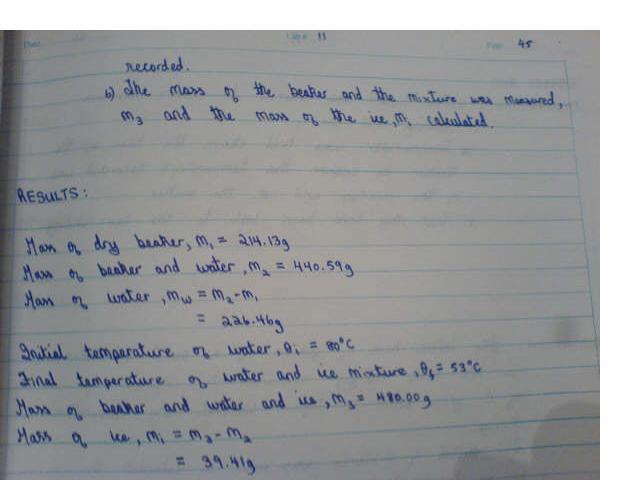 11
45
recorded.
6) The mass of the beaker and the mixture was measured,
m₃ and the mass of the ice, mᵢ calculated.
RESULTS:
Mass of dry beaker, m₁ = 214.13g
Mass of beaker and water, m₂ = 440.59g
Mass of water, mw = m₂-m₁
= 226.46g
Initial temperature of water, θᵢ = 80°C
Final temperature of water and ice mixture, θf = 53°C
Mass of beaker and water and ice, m₃ = 480.00g
Mass of ice, mᵢ = m₃-m₂
= 39.41g